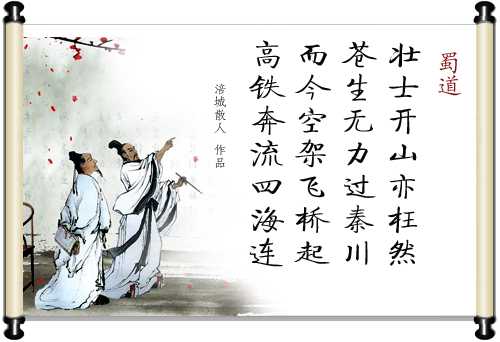 蜀道
壮士开山亦枉然
苍生无力过秦川
而今空架飞桥起
高铁奔流四海连
涪城散人 作品